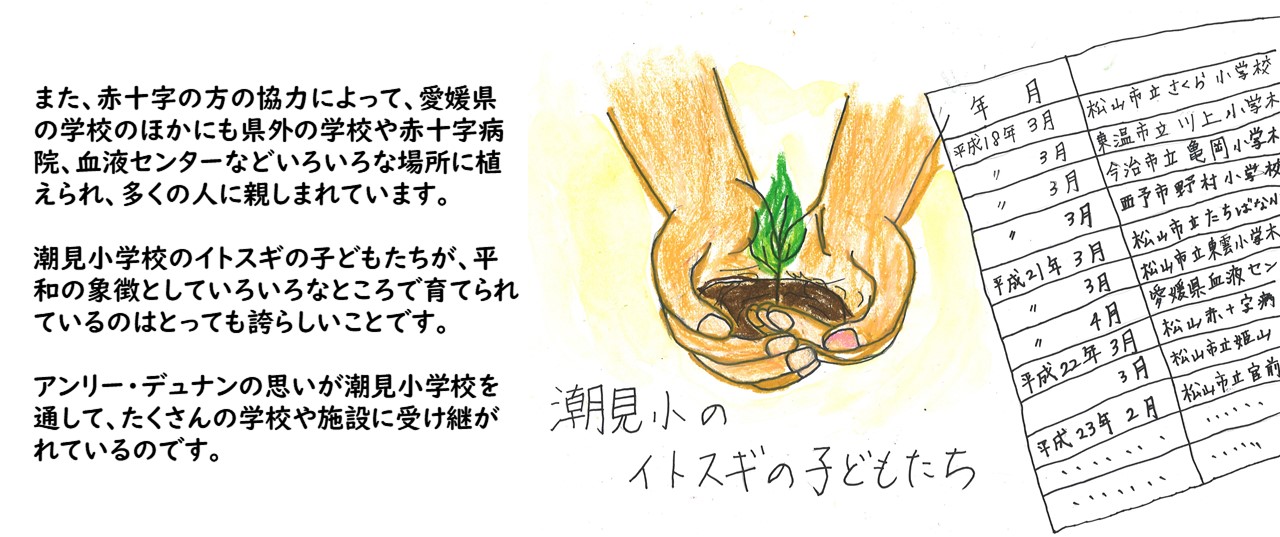 また、赤十字の方の協力によって、愛媛県
の学校のほかにも県外の学校や赤十字病
院、血液センターなどいろいろな場所に植
えられ、多くの人に親しまれています。
潮見小学校のイトスギの子どもたちが、平
和の象徴としていろいろなところで育てられ
ているのはとっても誇らしいことです。
アンリー・デュナンの思いが潮見小学校を
通して、たくさんの学校や施設に受け継が
れているのです。
潮見小の
イトスギの子どもたち
年 月
平成18年 3月 松山市立さくら小学校
〃 3月 東温市立川上小学
〃 3月 今治市立亀岡小学
〃 3月 西予市野村小学校
平成21年 3月 松山市立たちばな小
〃 3月 松山市立東雲小学
〃 4月 愛媛県血液セン
平成22年 3月 松山赤十字病
3月 松山市立姫山
平成23年 2月 松山市立宮前
、、、、、、、 、、、、、、
、、、、、、、 、、、、、